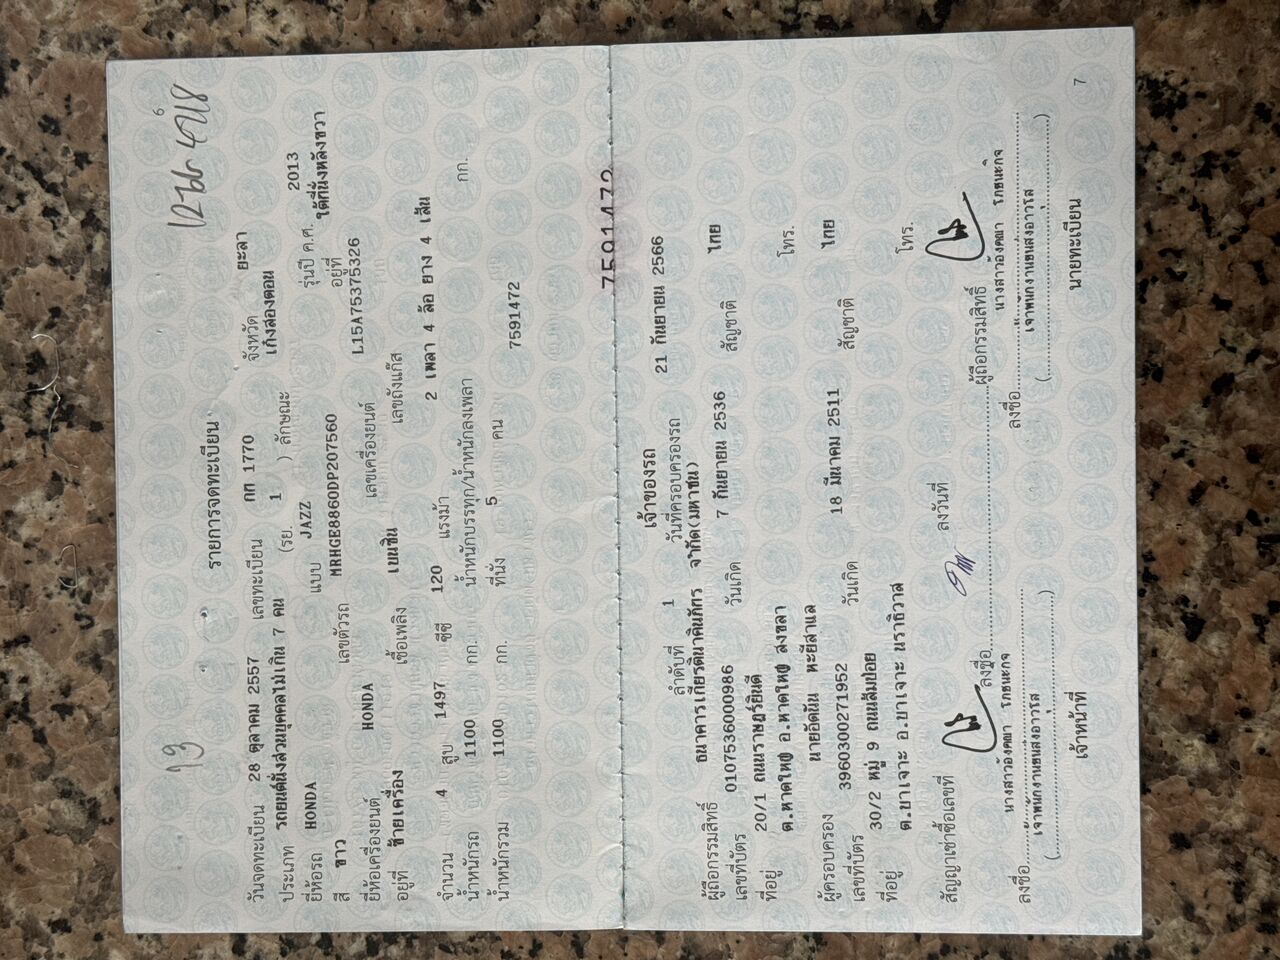 13
6
รายการจดทะเบียน
วันจดทะเบียน 28 ตุลาคม 2557 เลขทะเบียน กก 1770 จังหวัด ยะลา
ประเภท รถยนต์นั่งส่วนบุคคลไม่เกิน 7 คน (รย. 1 ) ลักษณะ เก๋งสองตอน
ยี่ห้อรถ HONDA แบบ JAZZ รุ่นปี ค.ศ. 2013
สี ขาว เลขตัวรถ MRHGE8860DP207560 อยู่ที่ ใต้ที่นั่งหลังขวา
ยี่ห้อเครื่องยนต์ HONDA เลขเครื่องยนต์ L15A75375326
อยู่ที่ ซ้ายเครื่อง เชื้อเพลิง เบนซิน เลขถังแก๊ส
จำนวน 4 สูบ 1497 ซีซี 120 แรงม้า 2 เพลา 4 ล้อ ยาง 4 เส้น
น้ำหนักรถ 1100 กก. น้ำหนักบรรทุก/น้ำหนักลงเพลา กก.
น้ำหนักรวม 1100 กก. ที่นั่ง 5 คน 7591472
7591472
เจ้าของรถ
ลำดับที่ 1 วันที่ครอบครองรถ 21 กันยายน 2566
ผู้ถือกรรมสิทธิ์ ธนาคารเกียรตินาคินภัทร จำกัด(มหาชน)
เลขที่บัตร 0107536000986 วันเกิด 7 กันยายน 2536 สัญชาติ ไทย
ที่อยู่ 20/1 ถนนราษฎร์ยินดี
ต.หาดใหญ่ อ.หาดใหญ่ สงขลา โทร.
ผู้ครอบครอง นายอัดนัน หะยีสาแล
เลขที่บัตร 3960300271952 วันเกิด 18 มีนาคม 2511 สัญชาติ ไทย
ที่อยู่ 30/2 หมู่ 9 ถนนส้มป่อย
ต.บาเจาะ อ.บาเจาะ นราธิวาส โทร.
สัญญาเช่าซื้อเลขที่ ลงวันที่
ลงชื่อ ผู้ถือกรรมสิทธิ์
นางสาวอังคณา โภชนะกิจ นางสาวอังคณา โภชนะกิจ
ลงชื่อ เจ้าพนักงานขนส่งอาวุโส ลงชื่อ เจ้าพนักงานขนส่งอาวุโส
( ) ( )
เจ้าหน้าที่ นายทะเบียน
7